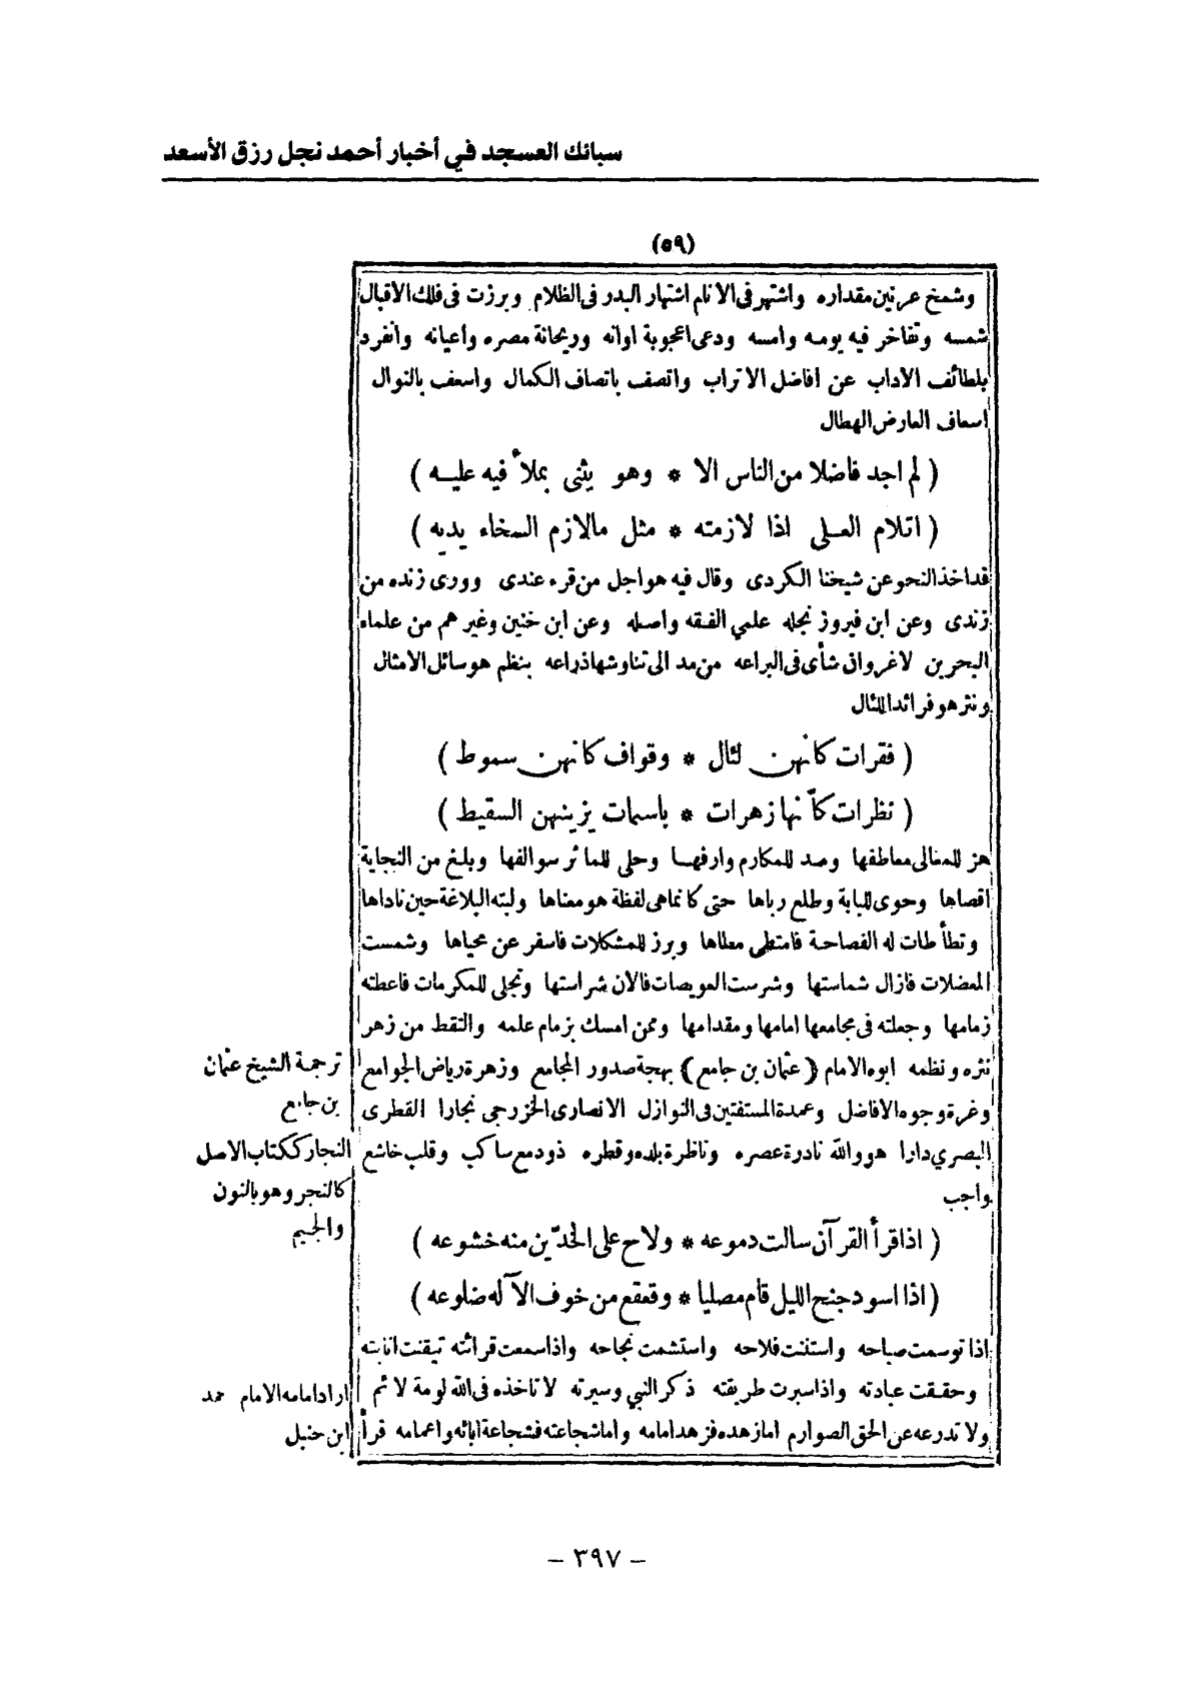 سبائك العسجد في أخبار أحمد نجل رزق الأسعد
(٥٩)
وشمخ عرنين مقداره واشتهر فى الانام اشتهار البدر فى الظلام وبرزت فى فلك الاقبال
شمسه وتفاخر فيه يومه وامسه ودعى اعجوبة اوانه وريحانة مصره واعيانه وانفرد
بلطائف الاداب عن افاضل الاتراب واتصف باتصاف الكمال واسعف بالنوال
اسعاف العارض الهطال
( لم اجد فاضلا من الناس الا * وهو يثنى بملأ فيه عليه )
( اتلام العلى اذا لازمته * مثل مالازم السخاء يديه )
قد اخذ النحو عن شيخنا الكردى وقال فيه هو اجل من قرء عندى وورى زنده من
زندى وعن ابن فيروز نجله علمي الفقه واصله وعن ابن خنين وغير هم من علماء
البحرين لا غرو ان شأى فى البراعه من مد الى تناوشها ذراعه بنظم هو سائل الامثال
ونثر هو فرائد اللئال
( فقرات كانهن لئال * وقواف كانهن سموط )
( نظرات كأنها زهرات * باسمات يزينهن السقيط )
هز للمعالى معاطفها ومد للمكارم وارفها وحلى للماثر سوالفها وبلغ من النجابة
اقصاها وحوى للبابة وطلع رباها حتى كانماهى لفظة هو معناها ولبته البلاغة حين ناداها
وتطأطات له الفصاحة فامتطى مطاها وبرز للمشكلات فاسفر عن محياها وشمست
المعضلات فازال شماستها وشرست العويصات فالان شراستها وتجلى للمكرمات فاعطته
زمامها وجعلته فى مجامعها امامها ومقدامها وممن امسك بزمام علمه والتقط من زهر
نثره ونظمه ابوه الامام ( عثمان بن جامع ) بهجة صدور المجامع وزهرة رياض الجوامع
وغرة وجوه الافاضل وعمدة المستفتين فى النوازل الانصارى الخزرجى نجارا القطرى
البصري دارا هو والله نادرة عصره وناظرة بلده وقطره ذو دمع ساكب وقلب خاشع
واجب
( اذا قرأ القرآن سالت دموعه * ولاح على الخدّين منه خشوعه )
( اذا اسود جنح الليل قام مصليا * وقعقع من خوف الآله ضلوعه )
اذا توسمت صباحه واستثنت فلاحه واستشمت نجاحه واذا سمعت قرائته تيقنت انابته
وحققت عبادته واذا سبرت طريقته ذكر النبي وسيرته لا تاخذه فى الله لومة لائم
ولا تدرعه عن الحق الصوارم اما زهده فزهد امامه واما شجاعته فشجاعة ابائه واعمامه قرأ
ترجمة الشيخ عثمان
بن جامع
النجار ككتاب الاصل
كالنجر وهو بالنون
والجيم
اراد امامه الامام حمد
ابن حنبل
– ٣٩٧ –